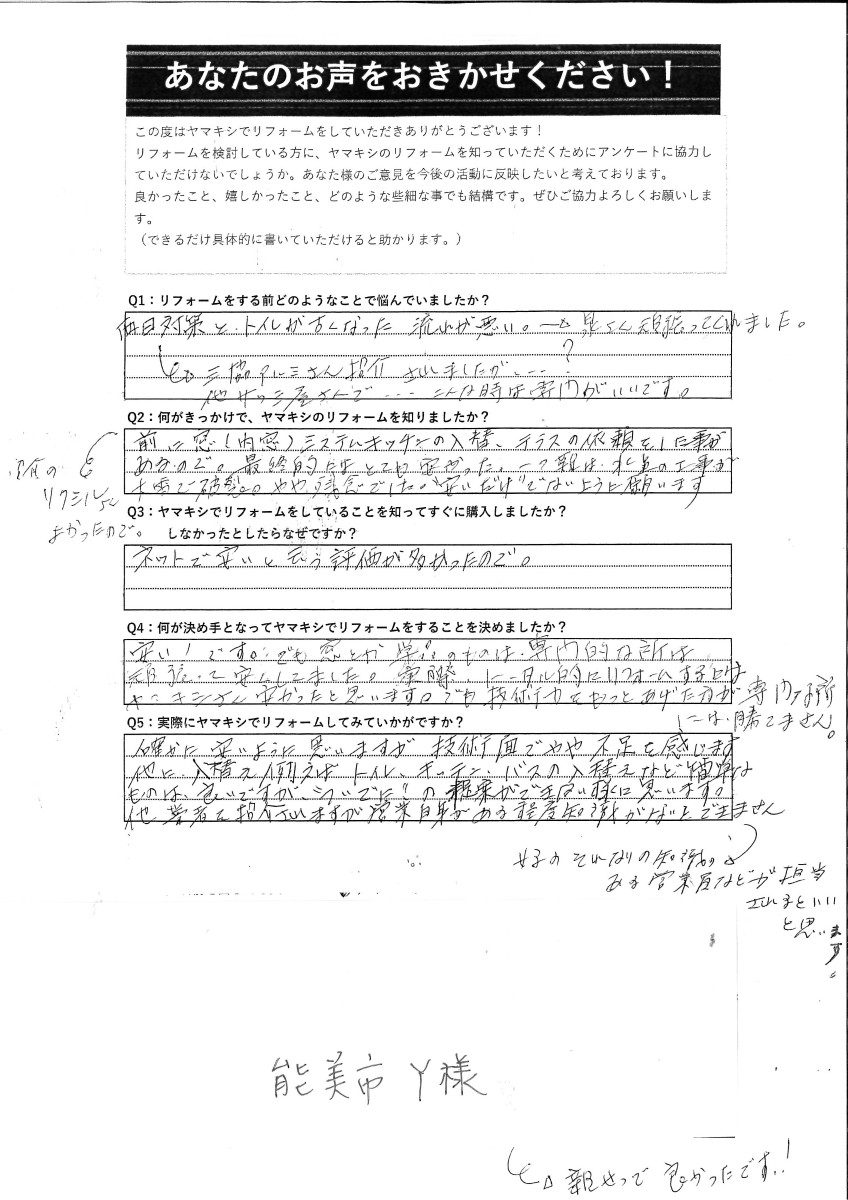 あなたのお声をおきかせください！
この度はヤマキシでリフォームをしていただきありがとうございます！
リフォームを検討している方に、ヤマキシのリフォームを知っていただくためにアンケートに協力し
ていただけないでしょうか。あなた様のご意見を今後の活動に反映したいと考えております。
良かったこと、嬉しかったこと、どのような些細な事でも結構です。ぜひご協力よろしくお願いしま
す。
（できるだけ具体的に書いていただけると助かります。）
Q1：リフォームをする前どのようなことで悩んでいましたか？
西日対策と、トイレが古くなった 流れが悪い。→ さん頑張ってくれました。
→ 三協アルミさん紹介 されましたが、---?
他サッシ屋さんで --- こんな時は専門がいいです。
Q2：何がきっかけで、ヤマキシのリフォームを知りましたか？
前に窓（内窓）システムキッチンの入替、テラスの依頼をした事が
あるので。最終的にはとても安かった。
で破裂。やや残念でした。"安いだけ"でないように願います
リクシルさん
よかったので。
Q3：ヤマキシでリフォームをしていることを知ってすぐに購入しましたか？
しなかったとしたらなぜですか？
ネットで安いと云う評価が多かったので。
Q4：何が決め手となってヤマキシでリフォームをすることを決めましたか？
安い！です。でも窓とか のものは、専門的な所は
頑張って安くしてました。実際、トータル的にリフォームする上では
ヤマキシさん安かったと思います。でも技術力をもっとあげた方が専門の所
には勝てません。
Q5：実際にヤマキシでリフォームしてみていかがですか？
確かに安いように思いますが技術面でやや不足を感じます
他に入替え例えばトイレ、キッチン、バスの入替えなど簡単な
ものは、良いですが、"ついでに"の提案ができない様に思います。
他業者を紹介されますが営業自身がある程度知識がないとできません
女子のそれなりの知識の
ある営業員などが担当
されるといい
と思います。
能美市 Y様
→ 親切で良かったです！